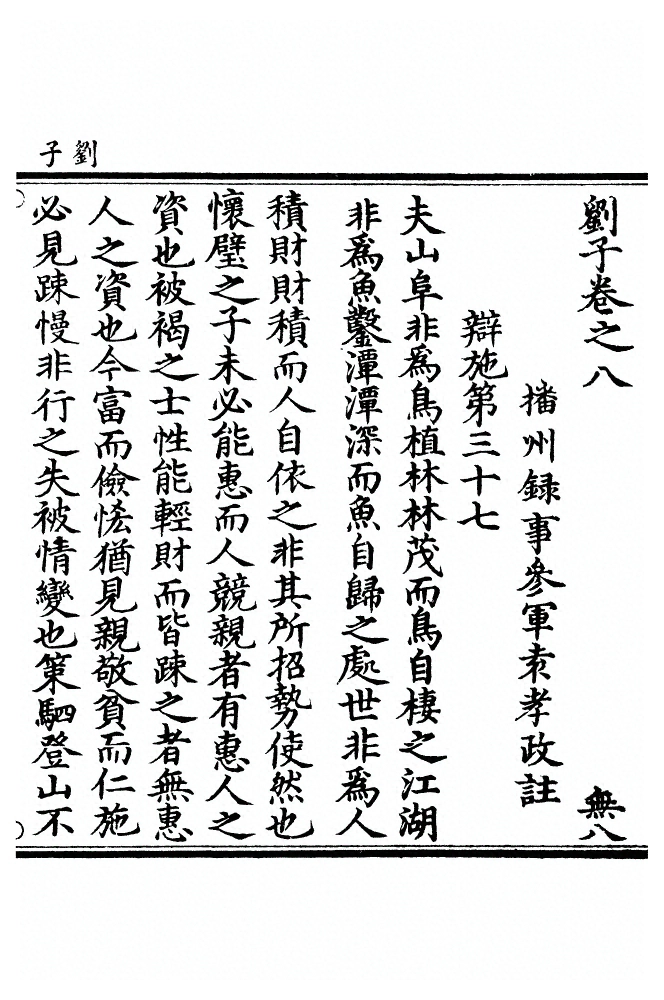 劉子
劉子卷之八
無八
播州録事參軍袁孝政註
辯施第三十七
夫山阜非爲鳥植林林茂而鳥自棲之江湖
非爲魚鑿潭潭深而魚自歸之處世非爲人
積財財積而人自依之非其所招勢使然也
懷璧之子未必能惠而人競親者有惠人之
資也被褐之士性能輕財而皆踈之者無惠
人之資也今富而儉恡猶見親敬貧而仁施
必見踈慢非行之失被情變也策駟登山不